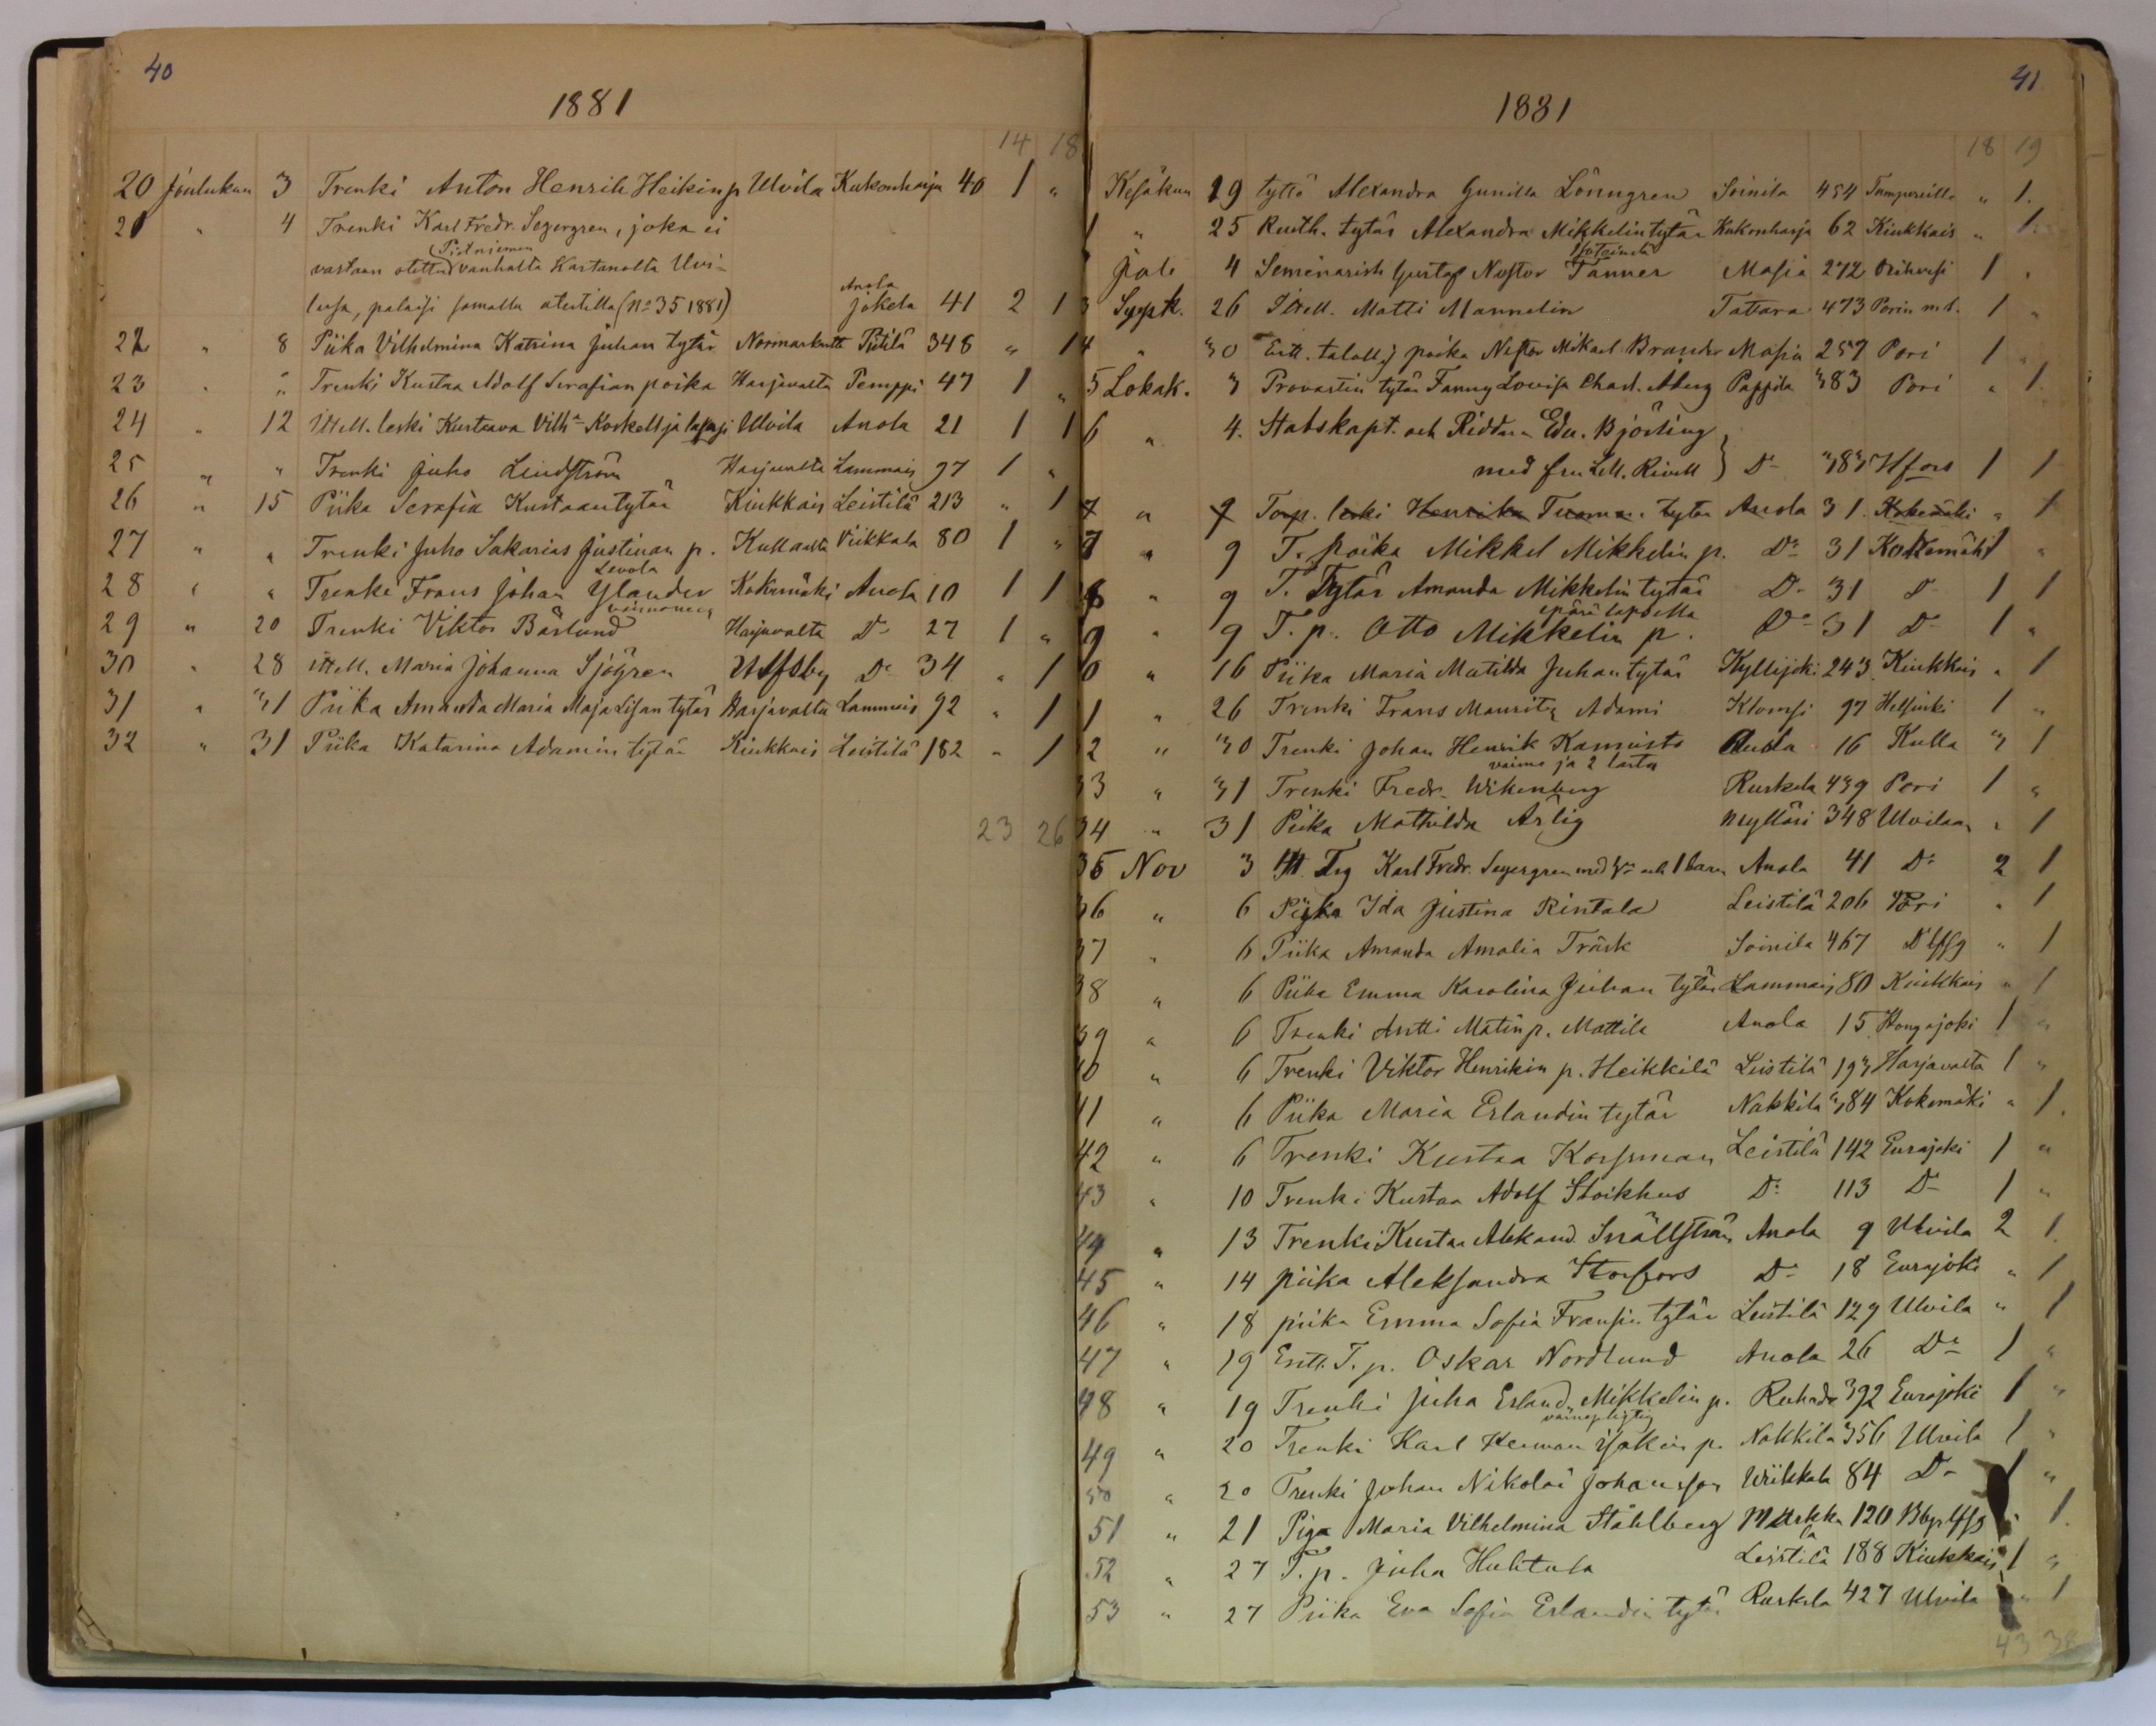 40
1881
14 18
20 Joulukuu 3 Trenki Anton Henrik Heikin p Ulvila Kukonharja 40 1 "
21 " 4 Trenki Karl Fredr. Segergren, joka ei
vastaan otettu vanhalta Kartanolta Ulvi-
lassa, palaisi samalla (No 35 1881) Anola Jokela 41 2 1
22 " 8 Piika Vilhelmina Katrina Juhan tytär Normarkutta Piitilä 348 " 1
23 " " Trenki Kustaa Adolf Serafian poika Harjavalta Pemppi 47 1 "
24 " 12 Itsell. leski Kustaava Vilh:a Koskell ja lapsi Ulvila Anola 21 1 1
25 " " Trenki Juho Lindström Harjavalta Lammais 97 1 "
26 " 15 Piika Serafia Kustaantytär Kiukkais Leistilä 213 " 1
27 " " Trenki Juho Sakarias Justinan p. Kullaalta Viikkala 80 1 "
28 " " Trenki Frans Johan Ylander Levola Kokemäki Anola 10 1 1
29 " 20 Trenki Viktor Bärlund Harjavalta Do 27 1 "
30 " 28 Itsell. Maria Johanna Sjögren Ulfsby Do 34 " 1
31 " 31 Piika Amanda Maria Maja Lisan tytär Harjavalta Lammais 92 " 1
32 " 31 Piika Katarina Adamin tytär Kiukkais Leistilä 182 " 1
23 26
41
1881
18 19
Kesäkuu 19 tyttö Alexandra Gunilla Lönngren Soinila 454 Tampereilla " 1.
" 25 Ruoth. tytär Alexandra Mikkelintytär Kukonharja 62 Kiukkais " 1
4 Seminarish Gustaf Nestor Tanner Masia 272 Orihvesi 1 "
3 Syysk. 26 Itsell. Matti Mannelin Tattara 473 Porin m.s. 1 "
4 " 30 Ent. talollis poika Nestor Mikael Brander Masia 257 Pori 1 "
5 Lokak. 3 Provastin tytär Fanny Lovisa Charl. Aberg Pappila 383 Pori " 1.
6 " 4. Stabskapt. och Riddaren Edv. Björling
med fru Rivell } Do 383 Hfors 1 1
7 " 9 Torp. leski Henrika Tuoma. tytär Anola 31. Kokemäki " 1
7 " 9 T. poika Mikkel Mikkelin p. Do 31 Kokemäki 1 "
8 " 9 T. Tytär Amanda Mikkelin tytär Do 31 Do 1 1
äpärä lapsella
9 " 9 T. p. Otto Mikkelin p. Do 31 Do 1 "
0 " 16 Piika Maria Matilda Juhantytär Kyllijoki 243 Kiukkais " 1
1 " 26 Trenki Frans Mauritz Adami Klomsi 97 Helsinki 1 "
2 " 30 Trenki Johan Henrik Kanuisto Anola 16 Kulla 3 1
vaimo ja 2 lasta
33 " 31 Trenki Fredr. Wikenberg Ruskela 439 Pori 1 "
34 " 31 Piika Mathilda Ärlig Mylläri 348 Ulvilaan " 1
35 Nov 3 Itt Trg Karl Fredr. Segergren med h:u och 1 barn Anola 41 Do 2 1
36 " 6 Piika Ida Justina Rintala Leistilä 206 Pori " 1
37 " 6 Piika Amanda Amalia Träsk Soinila 467 " 1
38 " 6 Piika Emma Karolina Juhan tytär Lammais 80 Kiukkais " 1
39 " 6 Trenki Antti Matin p. Mattila Anola 15 Hongajoki 1 "
40 " 6 Trenki Viktor Henrikin p. Heikkilä Leistilä 193 Harjavalta 1 "
41 " 6 Piika Maria Erlandin tytär Nakkila 384 Kokemäki " 1.
42 " 6 Trenki Kustaa Korsman Leistilä 142 Eurajoki 1 "
43 " 10 Trenki Kustaa Adolf Stoikhus Do 113 Do 1 "
44 " 13 Trenki Kustaa Aleksand. Snällström Anola 9 Ulvila 2 1.
45 " 14 piika Aleksandra Storfors Do 18 Eurajoki " 1
46 " 18 piika Emma Sofia Fransin tytär Leistilä 129 Ulvila " 1
47 " 19 Entt. T. p. Oskar Nordlund Anola 26 Do 1 "
48 " 19 Trenki Juha Erland Mikkelin p. Ruhade 392 Eurajoki 1 "
49 " 20 Trenki Karl Herman Isakin p. Nakkila 356 Ulvila 1 "
50 " 20 Trenki Johan Nikolai Johansson Wiikkala 84 Do 1 "
51 " 21 Piga Maria Vilhelmina Ståhlberg 120 " 1.
52 " 27 T. p. Juha Huhtala Leistilä 188 Kiukkais 1 "
53 " 27 Piika Eva Sofia Erlandin tytär Ruskela 427 Ulvila " 1
43 38